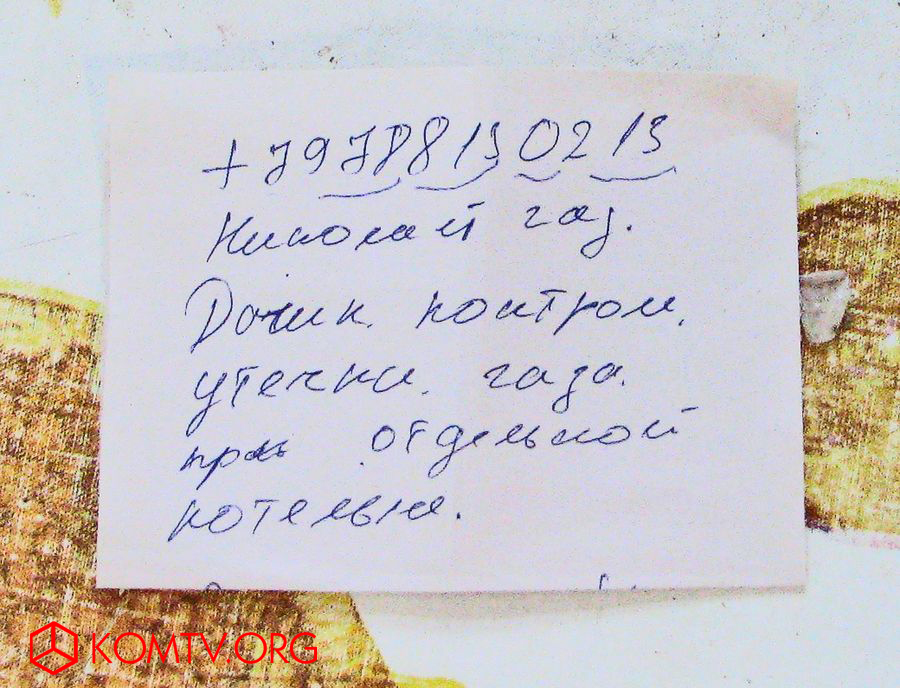 +79788130213
Николай газ.
Дочик. контрол.
утечки. газа.
отдельной
котельне.
KOMTV.ORG